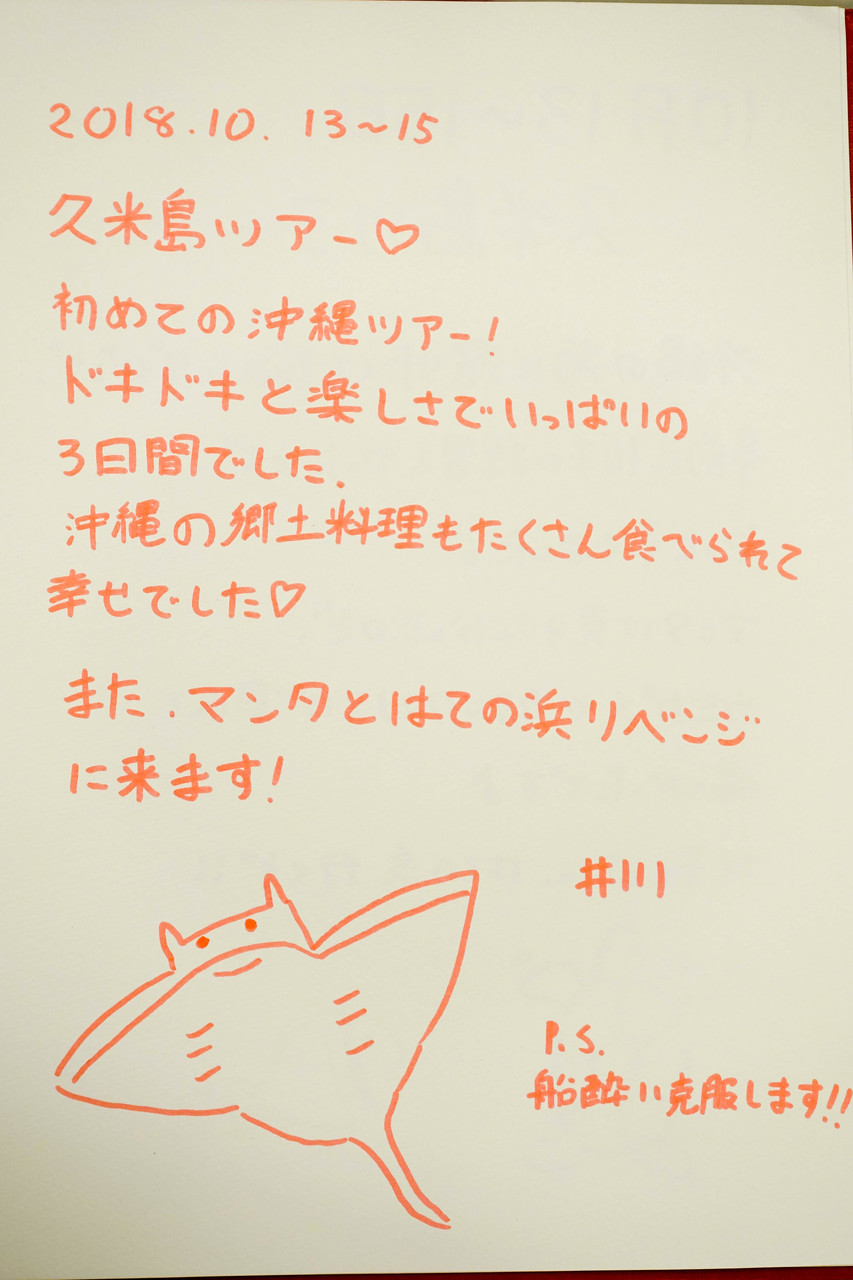 2018.10.13~15
久米島ツアー♡
初めての沖縄ツアー!
ドキドキと楽しさでいっぱいの
3日間でした.
沖縄の郷土料理もたくさん食べられて
幸せでした♡
また.マンタとはての浜リベンジ
に来ます!
井川
P.S.
船酔い克服します!!